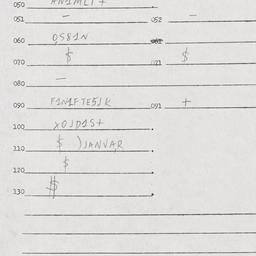 050 AN1MLT+
051 — 052 —
060 0S81N
070 $ 071 $
080 —
090 F1N1FTE5JK 091 +
100 X0JD1S+
110 $ )JANVAR
120 $
130 $